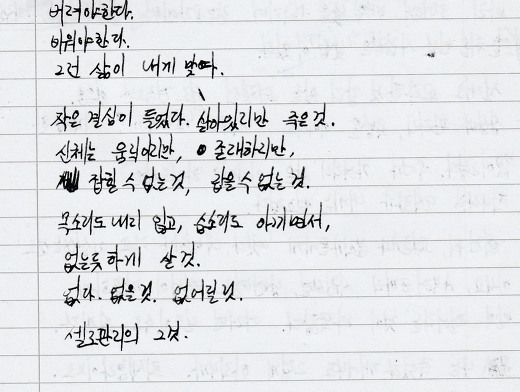 버려야한다.
비워야한다.
그런 삶이 내게 맞다.
작은 결심이 들었다. 살아있지만 죽은것.
신체는 움직이지만, 존재하지만,
잡힐 수 없는 것, 잡을 수 없는 것.
목소리도 내지 않고, 숨소리도 아끼면서,
없는듯하게 살 것.
없다. 없을것. 없어질것.
셀로판지의 그것.